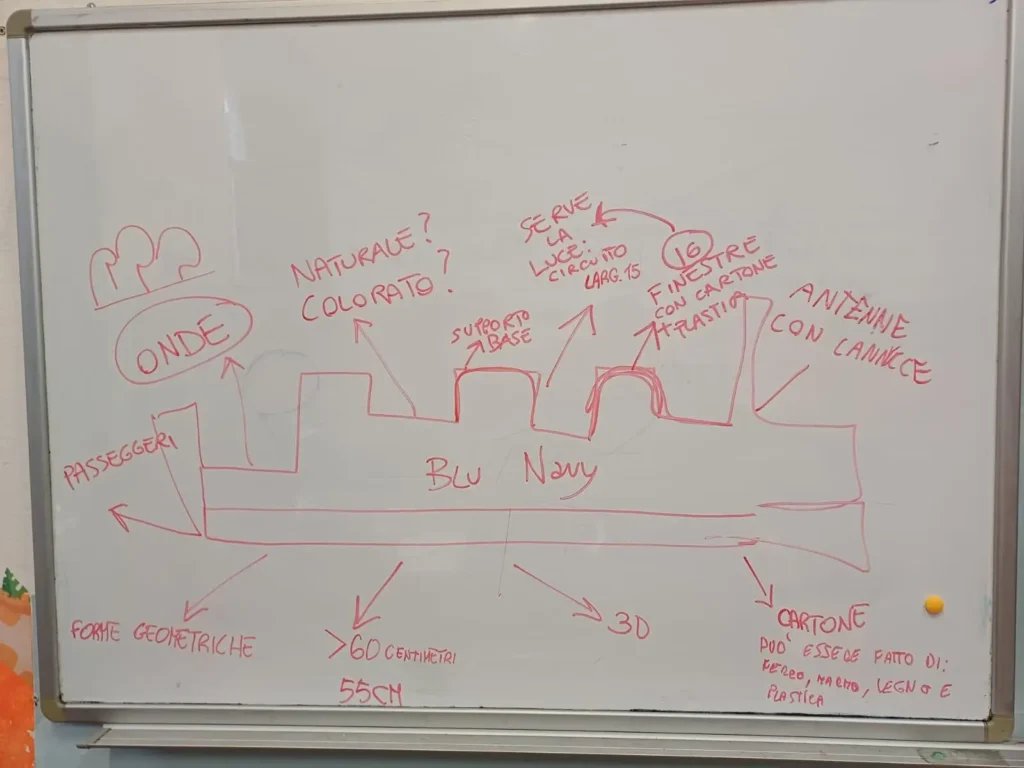 ONDE
NATURALE?
COLORATO?
SUPPORTO
BASE
SERVE
LA
LUCE:
CIRCUITO
LARG. 15
16
FINESTRE
CON CARTONE
+ PLASTICA
ANTENNE
CON CANNUCCE
PASSEGGERI
BLU Navy
FORME GEOMETRICHE
>60 CENTIMETRI
55CM
3D
CARTONE
PUO' ESSERE FATTO DI:
FERRO, MARMO, LEGNO E
PLASTICA